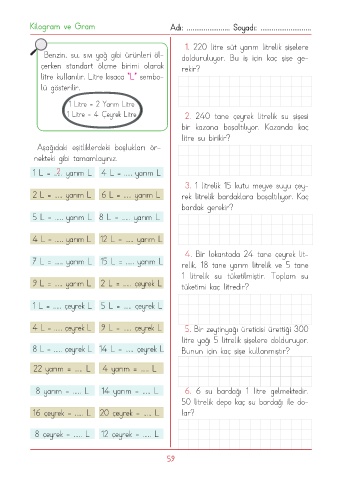 Kilogram ve Gram
Adı: .................... Soyadı: ........................
Benzin, su, sıvı yağ gibi ürünleri öl-
çerken standart ölçme birimi olarak
litre kullanılır. Litre kısaca "L" sembo-
lü gösterilir.
1 Litre = 2 Yarım Litre
1 Litre = 4 Çeyrek Litre
Aşağıdaki eşitliklerdeki boşlukları ör-
nekteki gibi tamamlayınız.
1 L = ..2.. yarım L 4 L = ..... yarım L
2 L = ..... yarım L 6 L = ..... yarım L
5 L = ..... yarım L 8 L = ..... yarım L
4 L = ..... yarım L 12 L = ..... yarım L
7 L = ..... yarım L 15 L = ..... yarım L
9 L = ..... yarım L 2 L = ..... çeyrek L
1 L = ..... çeyrek L 5 L = ..... çeyrek L
4 L = ..... çeyrek L 9 L = ..... çeyrek L
8 L = ..... çeyrek L 14 L = ..... çeyrek L
22 yarım = ..... L 4 yarım = ..... L
8 yarım = ..... L 14 yarım = ..... L
16 çeyrek = ..... L 20 çeyrek = ..... L
8 çeyrek = ..... L 12 çeyrek = ..... L
1. 220 litre süt yarım litrelik şişelere
dolduruluyor. Bu iş için kaç şişe ge-
rekir?
2. 240 tane çeyrek litrelik su şişesi
bir kazana boşaltılıyor. Kazanda kaç
litre su birikir?
3. 1 litrelik 15 kutu meyve suyu çey-
rek litrelik bardaklara boşaltılıyor. Kaç
bardak gerekir?
4. Bir lokantada 24 tane çeyrek lit-
relik, 18 tane yarım litrelik ve 5 tane
1 litrelik su tüketilmiştir. Toplam su
tüketimi kaç litredir?
5. Bir zeytinyağı üreticisi ürettiği 300
litre yağı 5 litrelik şişelere dolduruyor.
Bunun için kaç şişe kullanmıştır?
6. 6 su bardağı 1 litre gelmektedir.
50 litrelik depo kaç su bardağı ile do-
lar?
59